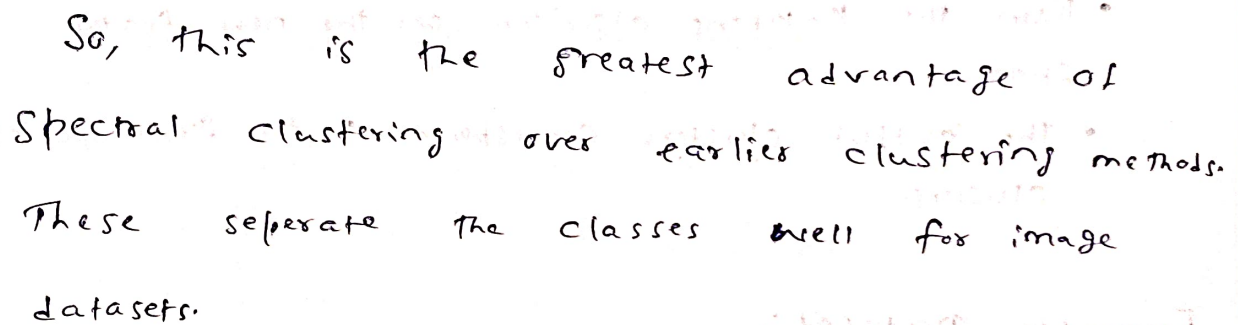 So, this is the greatest advantage of
Spectral clustering over earlier clustering methods.
These seperate the classes well for image
datasets.